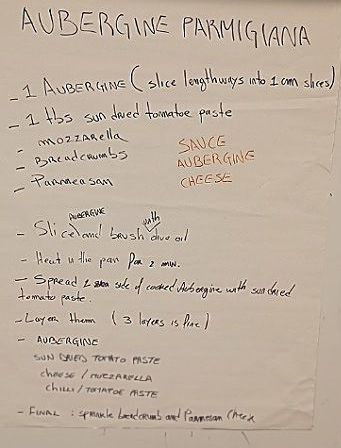 AUBERGINE PARMIGIANA
- 1 AUBERGINE (slice lengthways into 1 cm slices)
- 1 tbs sun dried tomatoe paste
- mozzarella
- Breadcrumbs
- Parmeasan
SAUCE
AUBERGINE
CHEESE
AUBERGINE with
- Slice and brush olive oil
- Heat in the pan for 2 min.
- Spread 1 side of cooked Aubergine with sundried
tomato paste.
- Layer them (3 layers is fine)
- AUBERGINE
SUN DRIED TOMATO PASTE
cheese / MOZZARELLA
CHILLI / TOMATOE PASTE
- FINAL : sprinkle breadcrumbs and Parmesan